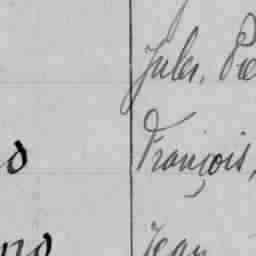 Jules, Pie
François,
Jean